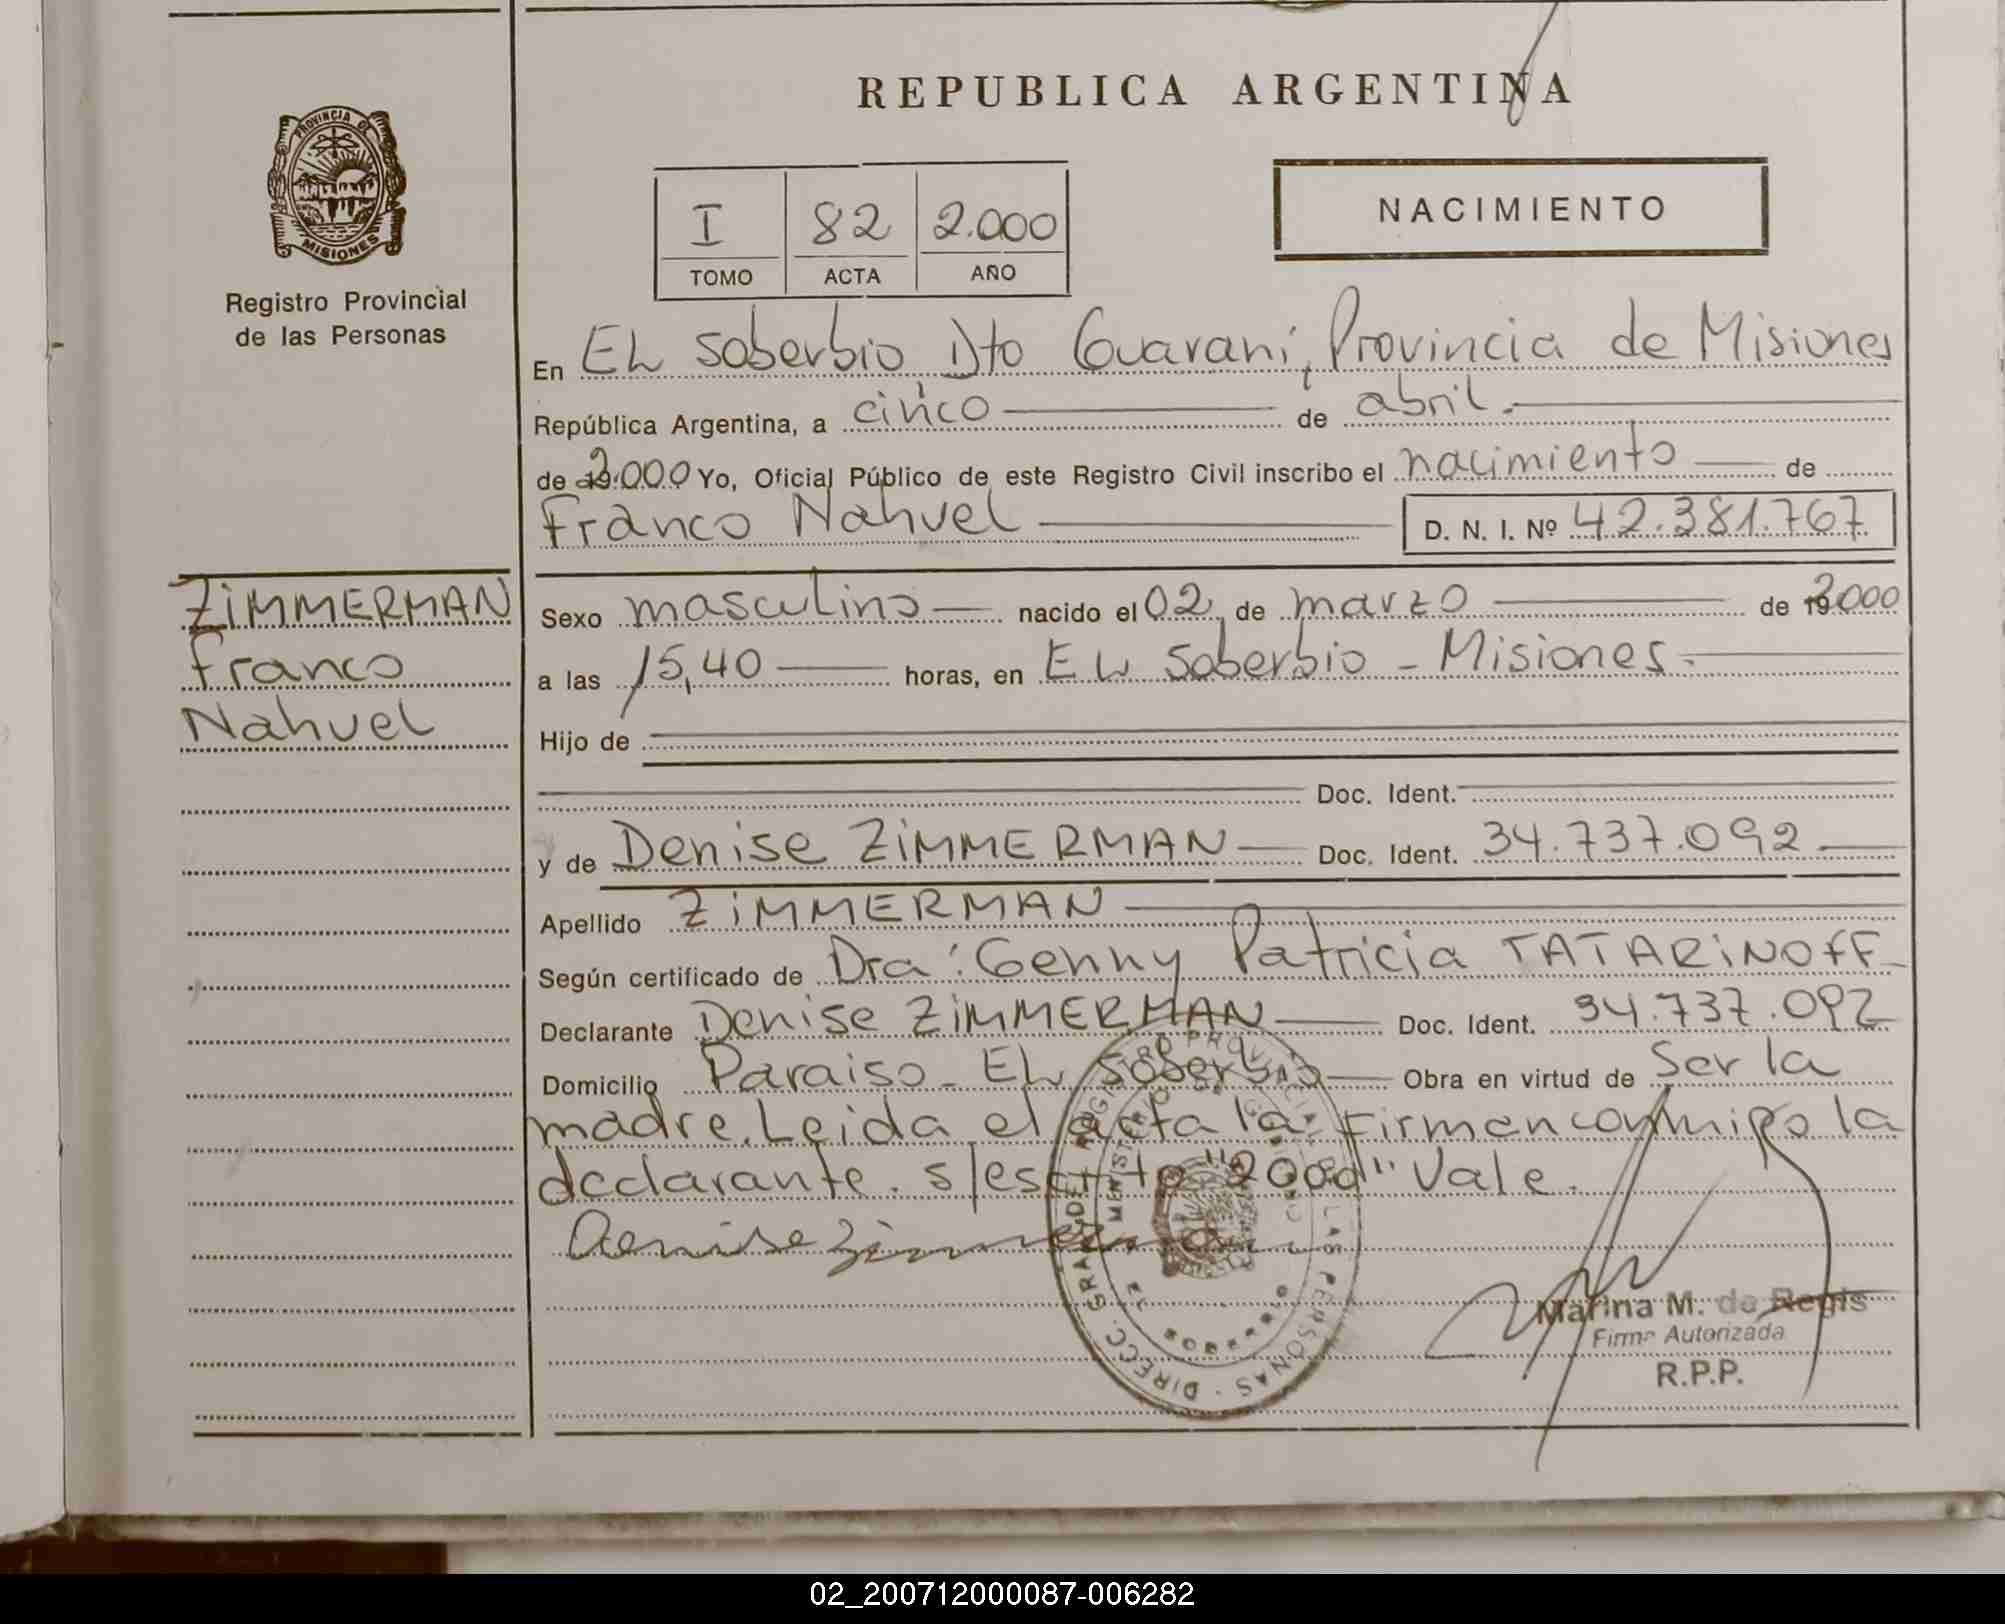 REPUBLICA ARGENTINA
PROVINCIA DE
MISIONES
Registro Provincial
de las Personas
I 82 2.000
TOMO ACTA AÑO
NACIMIENTO
En EL Soberbio Dto Guaraní, Provincia de Misiones
República Argentina, a cinco de abril.
de 2.000 Yo, Oficial Público de este Registro Civil inscribo el nacimiento de
Franco Nahuel D. N. I. Nº 42.381.767
ZIMMERMAN
Franco
Nahuel
Sexo masculino nacido el 02 de marzo de 2000
a las 15,40 horas, en EL Soberbio - Misiones.
Hijo de
Doc. Ident.
y de Denise ZIMMERMAN Doc. Ident. 34.737.092
Apellido ZIMMERMAN
Según certificado de Dra: Genny Patricia TATARINOFF
Declarante Denise ZIMMERMAN Doc. Ident. 34.737.092
Domicilio Paraiso - EL Soberbio Obra en virtud de Ser la
madre. Leida el acta la firman conmigo la
declarante. s/escrito "2000" Vale.
Denise Zimmerman
Marina M. de Regis
Firma Autorizada
R.P.P.
02_200712000087-006282